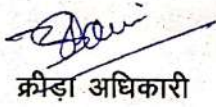 क्रीड़ा अधिकारी